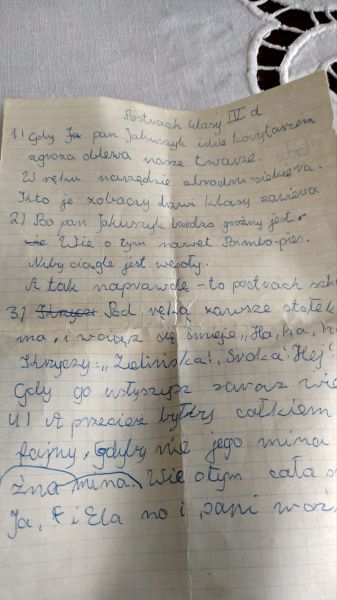 Postrach klasy IV d
1) Gdy Ja pan Jakuszyk idzie korytarzem
zgroza oblewa nasze twarze.
W ręku narzędzie zbrodni-siekiera.
Kto je zobaczy drzwi klasy zawiera
2) Bo pan Jakuszyk bardzo groźny jest.
Wie o tym nawet Bimbo-pies.
Niby ciągle jest wesoły.
A tak naprawdę - to postrach
3) Pod ręką zawsze stołek
ma, i wciąż się śmieje „Ha, ha,
Krzyczy: „Zalińska!, Sroka! Hej!
Gdy go usłyszysz zaraz
4) A przecież byłby całkiem
fajny, Gdyby nie jego mina
mina. Wie o tym cała
Ja, i Ela no i pani